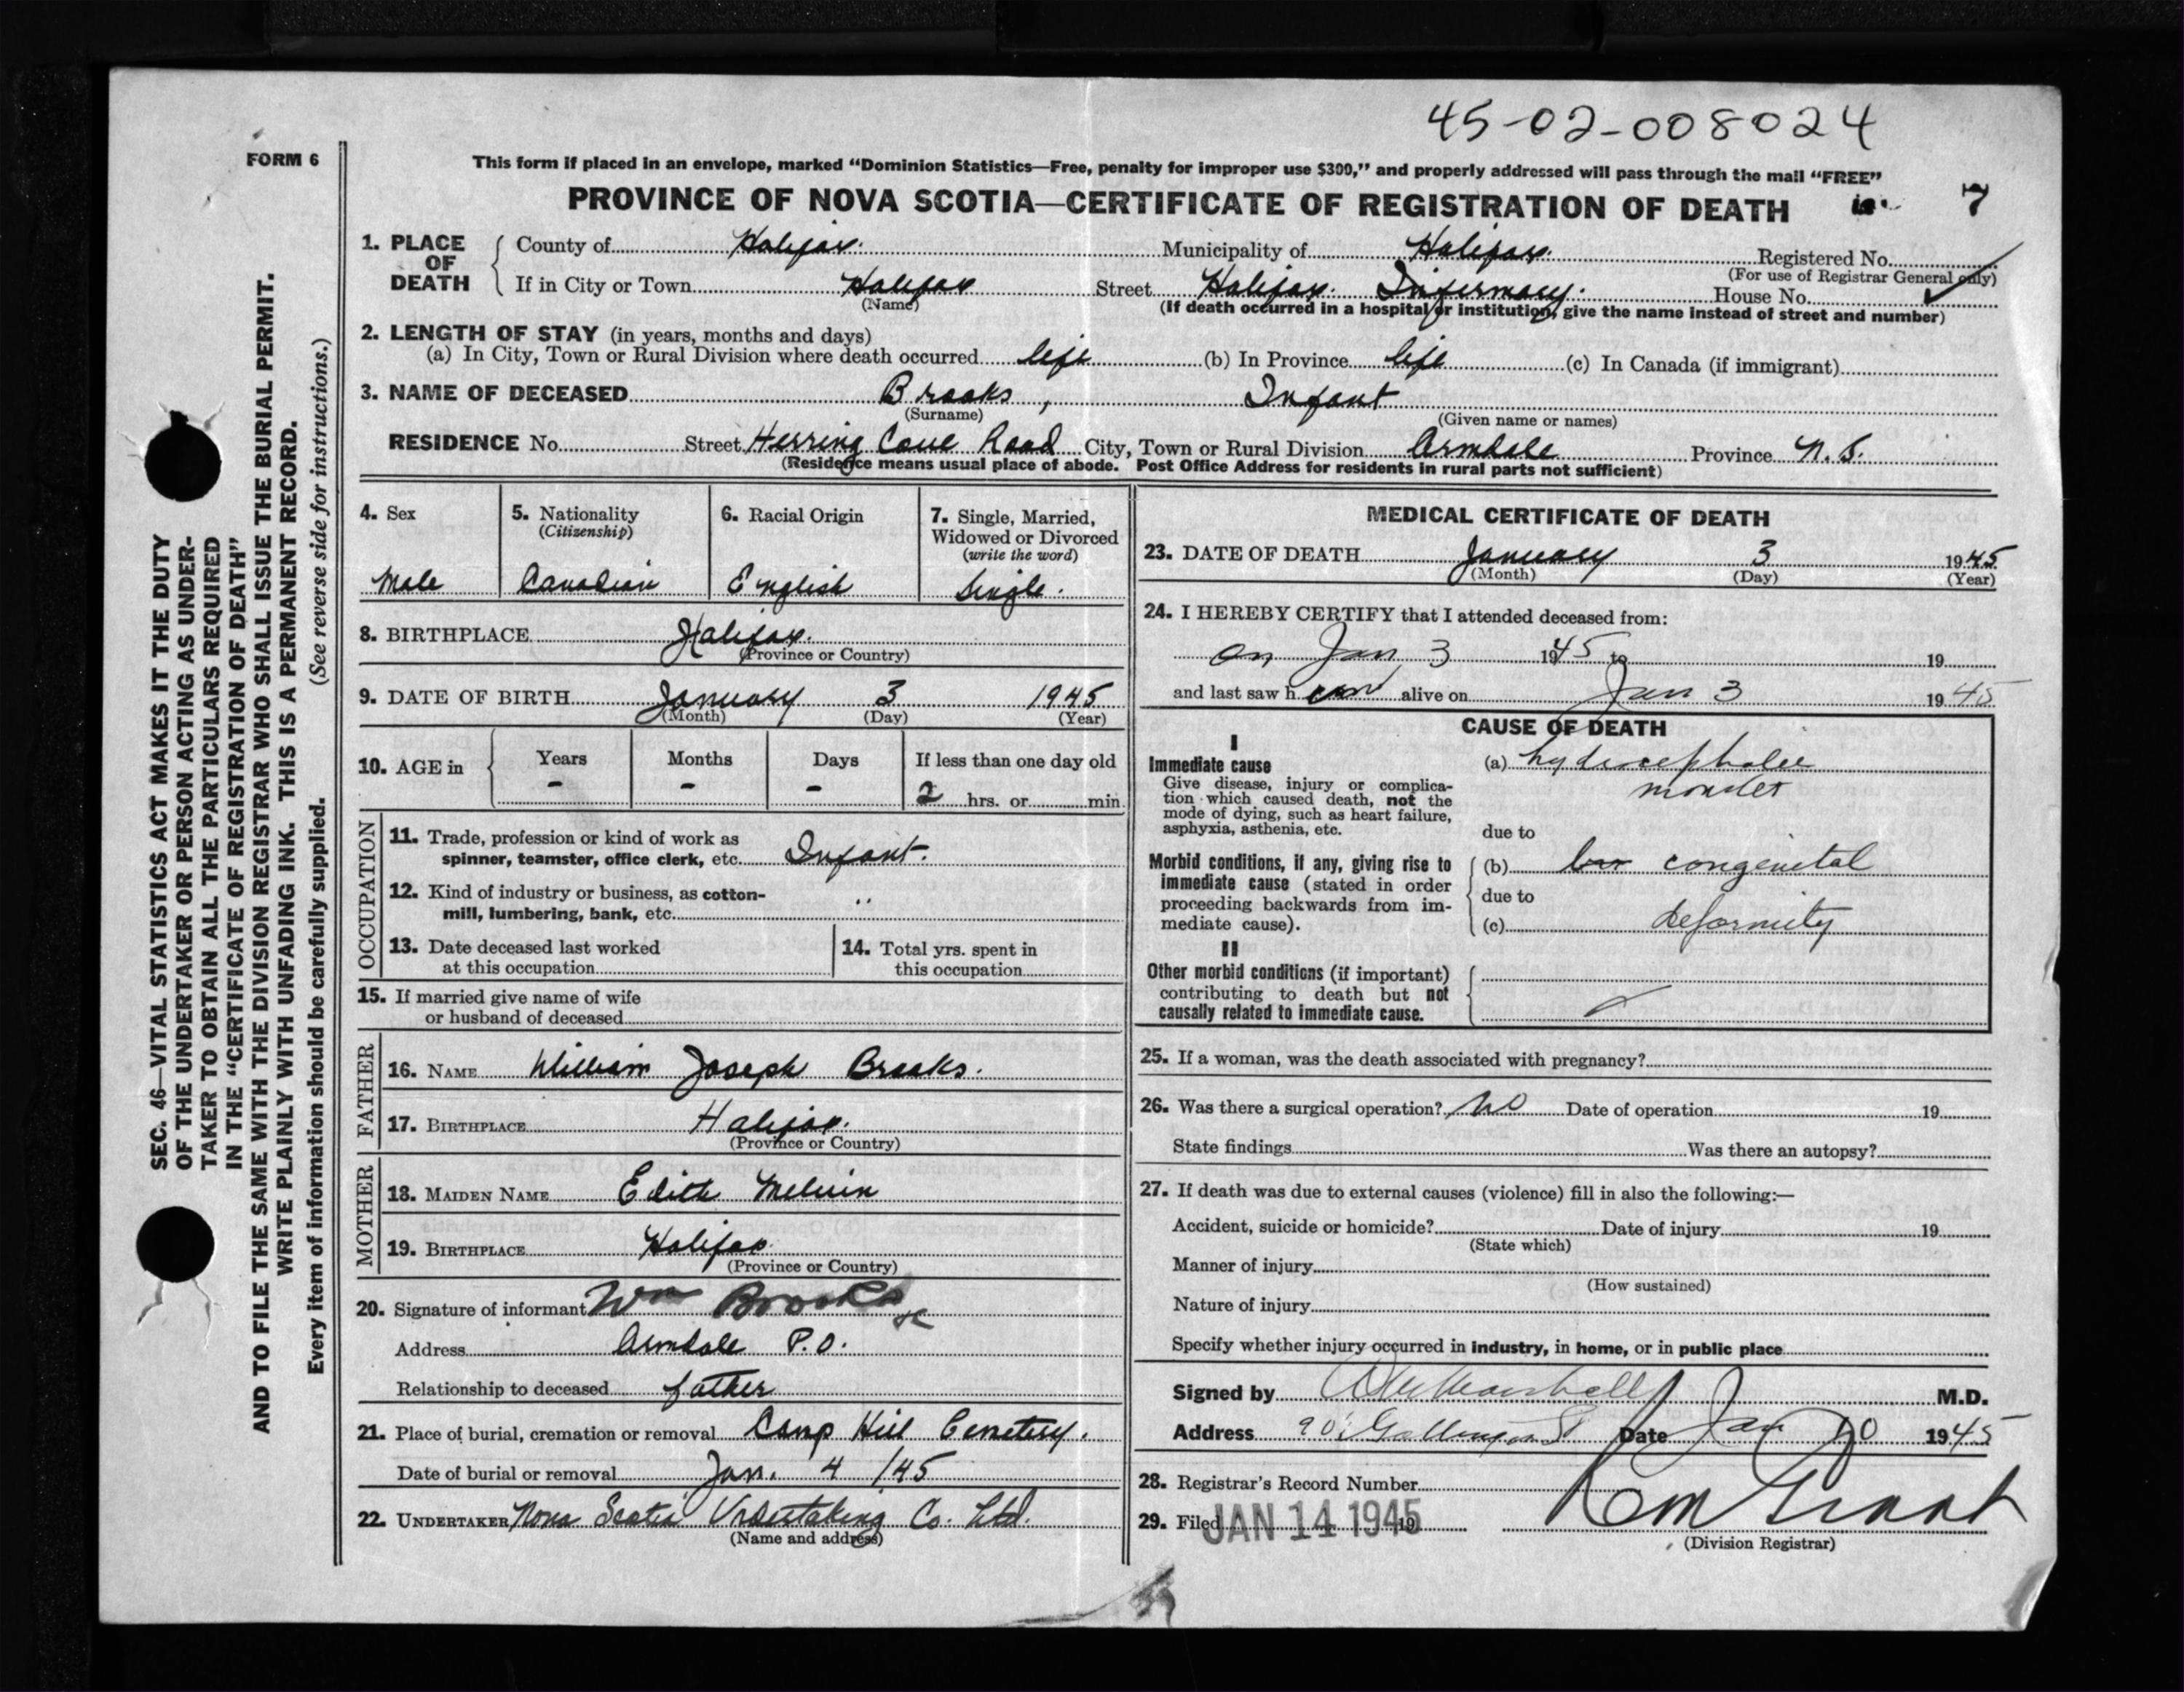 45-02-008024
FORM 6
This form if placed in an envelope, marked “Dominion Statistics—Free, penalty for improper use $300,” and properly addressed will pass through the mail “FREE”
PROVINCE OF NOVA SCOTIA—CERTIFICATE OF REGISTRATION OF DEATH 7
1. PLACE OF DEATH
County of Halifax. Municipality of Halifax. Registered No.
(For use of Registrar General only)
If in City or Town Halifax Street Halifax Infirmary. House No.
(Name) (If death occurred in a hospital or institution, give the name instead of street and number)
2. LENGTH OF STAY (in years, months and days)
(a) In City, Town or Rural Division where death occurred life (b) In Province life (c) In Canada (if immigrant)
3. NAME OF DECEASED Brooks , Infant
(Surname) (Given name or names)
RESIDENCE No. Street Herring Cove Road City, Town or Rural Division Armdale Province N.S.
(Residence means usual place of abode. Post Office Address for residents in rural parts not sufficient)
4. Sex
Male
5. Nationality
(Citizenship)
Canadian
6. Racial Origin
English
7. Single, Married,
Widowed or Divorced
(write the word)
Single.
8. BIRTHPLACE Halifax.
(Province or Country)
9. DATE OF BIRTH January 3 1945
(Month) (Day) (Year)
10. AGE in
Years Months Days If less than one day old
- - - 2 hrs. or min.
OCCUPATION
11. Trade, profession or kind of work as
spinner, teamster, office clerk, etc. Infant.
12. Kind of industry or business, as cotton-
mill, lumbering, bank, etc. "
13. Date deceased last worked
at this occupation
14. Total yrs. spent in
this occupation
15. If married give name of wife
or husband of deceased
FATHER
16. NAME William Joseph Brooks.
17. BIRTHPLACE Halifax.
(Province or Country)
MOTHER
18. MAIDEN NAME Edith Melvin
19. BIRTHPLACE Halifax
(Province or Country)
20. Signature of informant Wm Brooks
Address Armdale P.O.
Relationship to deceased father
21. Place of burial, cremation or removal Camp Hill Cemetery.
Date of burial or removal Jan. 4 /45
22. UNDERTAKER Nova Scotia Undertaking Co. Ltd.
(Name and address)
MEDICAL CERTIFICATE OF DEATH
23. DATE OF DEATH January 3 1945
(Month) (Day) (Year)
24. I HEREBY CERTIFY that I attended deceased from:
on Jan 3 1945 to 19
and last saw h alive on Jan 3 1945
CAUSE OF DEATH
I
Immediate cause
Give disease, injury or complica-
tion which caused death, not the
mode of dying, such as heart failure,
asphyxia, asthenia, etc.
(a) hydrocephalic
monster
due to
Morbid conditions, if any, giving rise to
immediate cause (stated in order
proceeding backwards from im-
mediate cause).
(b) congenital
due to
(c) deformity
II
Other morbid conditions (if important)
contributing to death but not
causally related to immediate cause.
25. If a woman, was the death associated with pregnancy?
26. Was there a surgical operation? no Date of operation 19
State findings Was there an autopsy?
27. If death was due to external causes (violence) fill in also the following:—
Accident, suicide or homicide? Date of injury 19
(State which)
Manner of injury
(How sustained)
Nature of injury
Specify whether injury occurred in industry, in home, or in public place
Signed by Marshall M.D.
Address Date Jan 10 1945
28. Registrar's Record Number
29. Filed JAN 14 1945 19
(Division Registrar)
SEC. 46—VITAL STATISTICS ACT MAKES IT THE DUTY
OF THE UNDERTAKER OR PERSON ACTING AS UNDER-
TAKER TO OBTAIN ALL THE PARTICULARS REQUIRED
IN THE “CERTIFICATE OF REGISTRATION OF DEATH”
AND TO FILE THE SAME WITH THE DIVISION REGISTRAR WHO SHALL ISSUE THE BURIAL PERMIT.
WRITE PLAINLY WITH UNFADING INK. THIS IS A PERMANENT RECORD.
Every item of information should be carefully supplied. (See reverse side for instructions.)